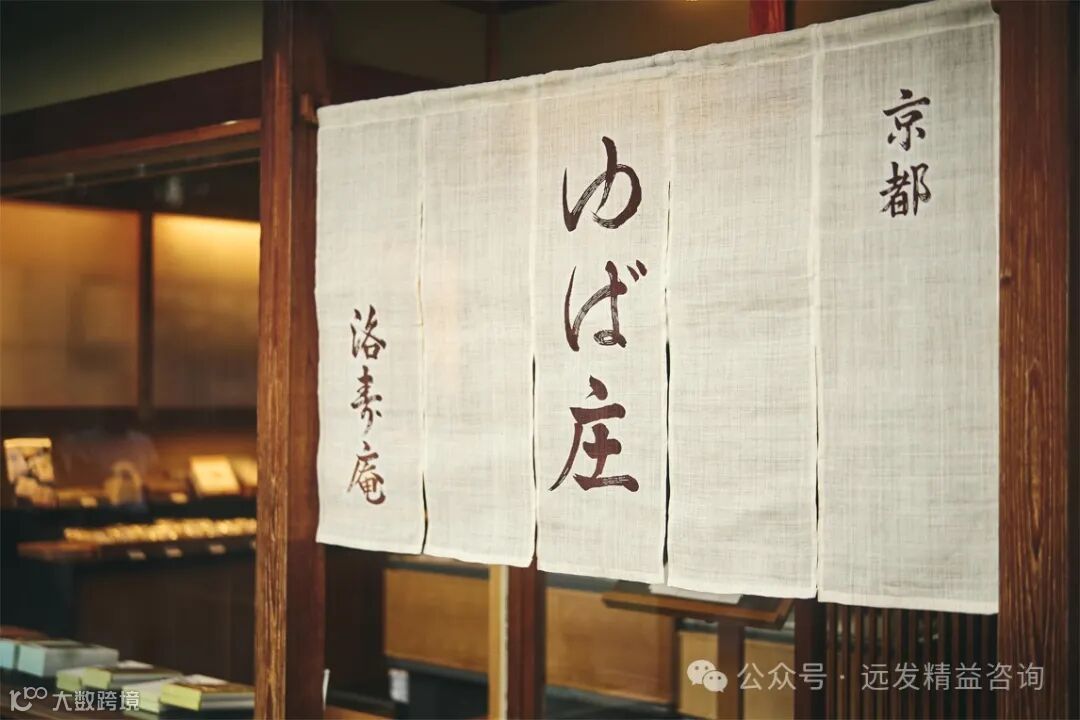 京都
ゆば庄
洛寿庵
公众号·远发精益咨询
大数跨境